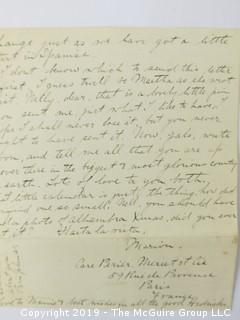 change just as we have got a little
start in Spanish.
I don't know which to send this letter
first. I guess twill be Martha as she went
it. Nelly, dear, that is a lovely little pin
you sent me just what I like to have. I
hope I shall never lose it, but you never
ought to have sent it. Now, gals, write
soon, and tell me all that you are up
over there in the biggest & most glorious country
earth. Lots of love to you both,
little calendar is out of the thing, her did
me so small. Nell, you should have
photo of alhambra Xmas, did you ever
get it? Hasta la outra.
Marion.
Care Perier, Mercet et Cie
59 Rue de Provence
Paris
France
Love to Mamie & best wishes for all the good
Copyright 2019 - The McGuire Group LLC